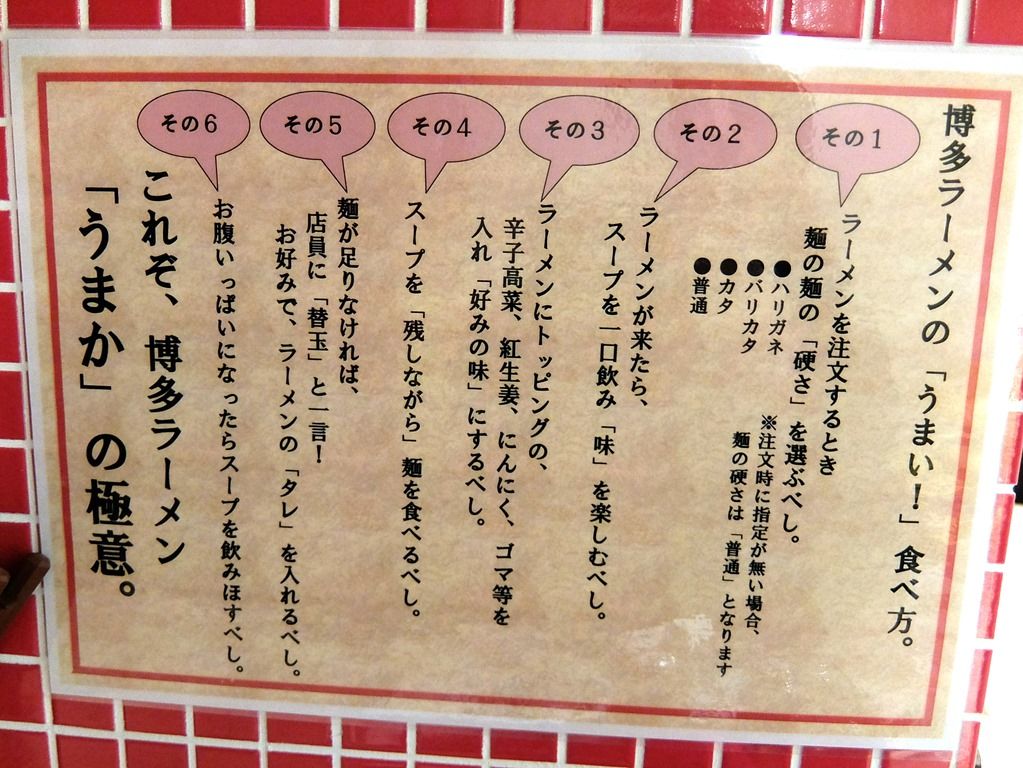 博多ラーメンの「うまい！」食べ方。
その1
ラーメンを注文するとき
麺の麺の「硬さ」を選ぶべし。
●ハリガネ
●バリカタ
●カタ
●普通
※注文時に指定が無い場合、
麺の硬さは「普通」となります
その2
ラーメンが来たら、
スープを一口飲み「味」を楽しむべし。
その3
ラーメンにトッピングの、
辛子高菜、紅生姜、にんにく、ゴマ等を
入れ「好みの味」にするべし。
その4
スープを「残しながら」麺を食べるべし。
その5
麺が足りなければ、
店員に「替玉」と一言！
お好みで、ラーメンの「タレ」を入れるべし。
その6
お腹いっぱいになったらスープを飲みほすべし。
これぞ、博多ラーメン
「うまか」の極意。